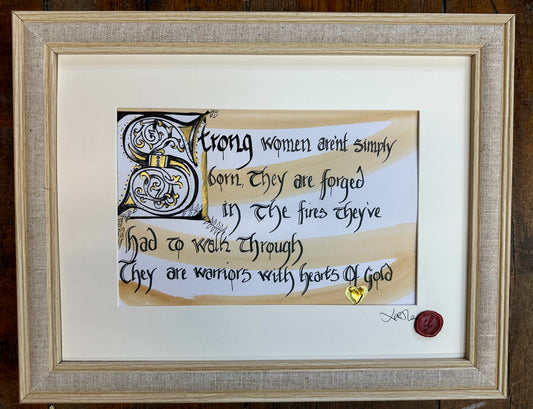 Strong women aren't simply
born, They are forged
in The fires They've
had to walk Through
They are warriors with hearts Of Gold